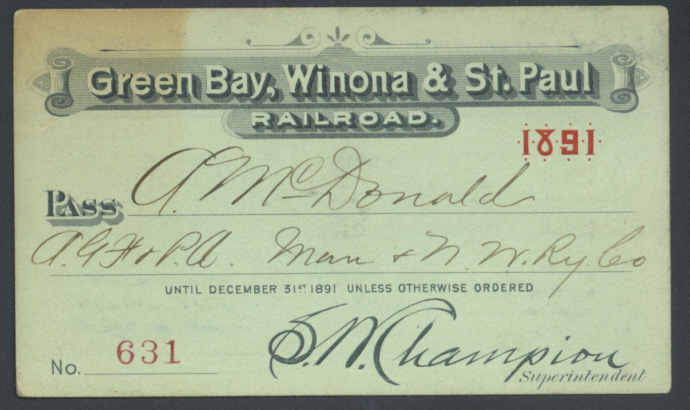 Green Bay, Winona & St. Paul
RAILROAD.
1891
PASS A. McDonald
A.G.F. & P.A. Man & N. W. Ry Co
UNTIL DECEMBER 31ST 1891 UNLESS OTHERWISE ORDERED
No. 631
S. W. Champion
Superintendent